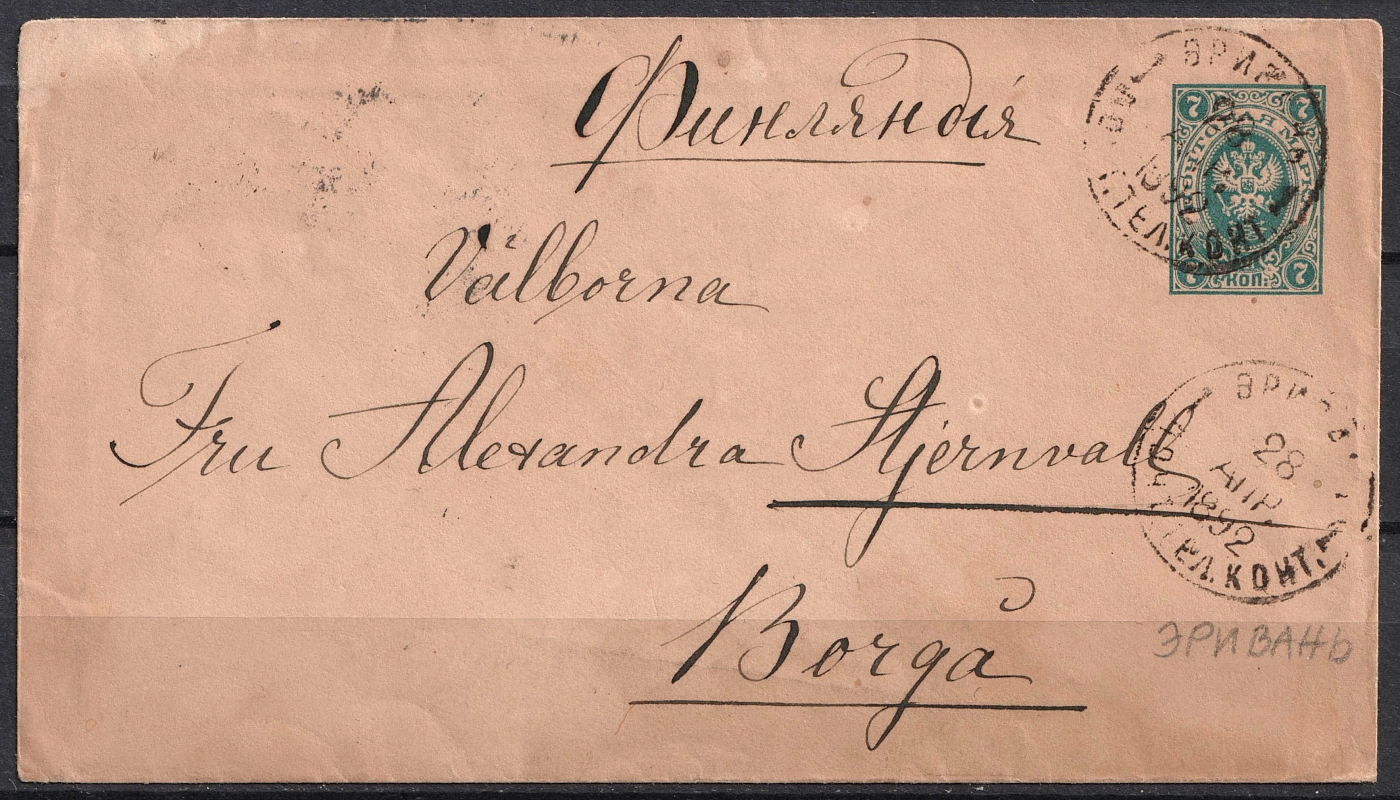 Финляндія
Välborna
Fru Alexandra Stjernvall
Borgå
7 7
ПОЧТОВАЯ МАРКА
7 КОП. 7
ТЕЛ. КОНТ.
28
АПР.
1892
ТЕЛ. КОНТ.
ЭРИВАНЬ